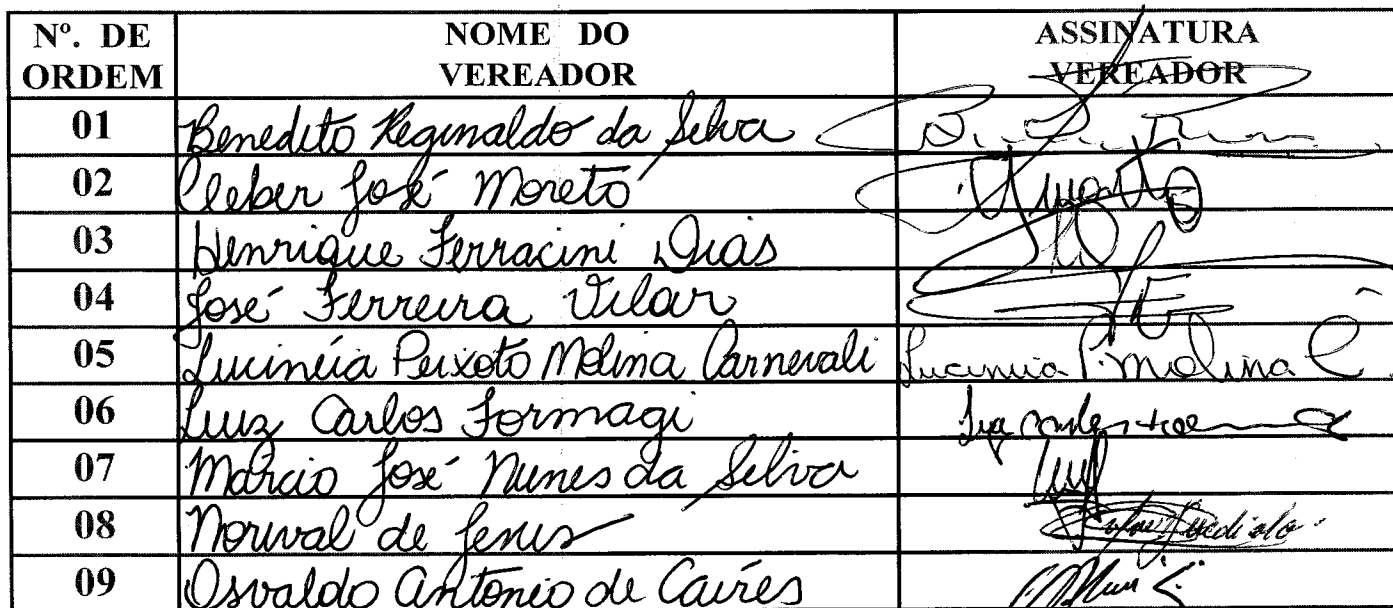 Nº. DE ORDEM NOME DO VEREADOR ASSINATURA VEREADOR
01 Benedito Reginaldo da Silva
02 Cleber José Moreto
03 Henrique Ferracini Dias
04 José Ferreira Vilar
05 Lucinéia Peixoto Molina Carnevali Lucineia P. Molina C.
06 Luiz Carlos Formagi
07 Marcio José Nunes da Silva
08 Norival de Jesus
09 Osvaldo Antonio de Caires